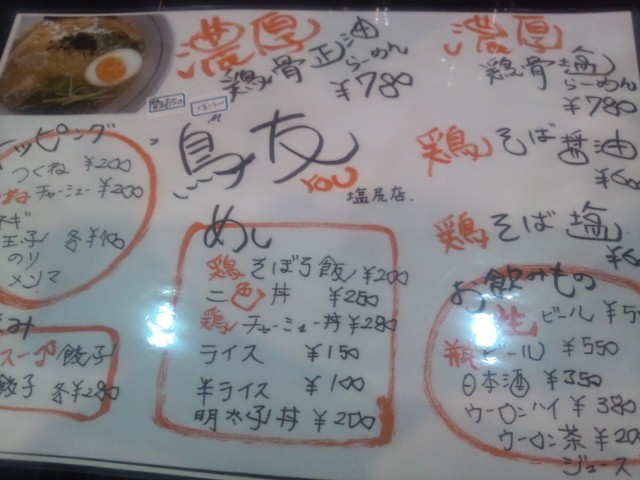 濃厚
鶏骨正油
らーめん
¥780
濃厚
鶏骨塩
らーめん
¥780
鳥友
YOU
塩尻店.
鶏そば醤油
鶏そば塩
ッピング
つくね ¥200
チャーシュー ¥200
ギ
玉子 各¥100
のり
メンマ
み
スープ餃子
餃子 各¥280
めし
鶏そぼろ飯 ¥200
二色丼 ¥250
鶏チャーシュー丼 ¥280
ライス ¥150
半ライス ¥100
明太子丼 ¥200
お飲みもの
生ビール
瓶ビール ¥550
日本酒 ¥350
ウーロンハイ ¥380
ウーロン茶 ¥20
ジュース